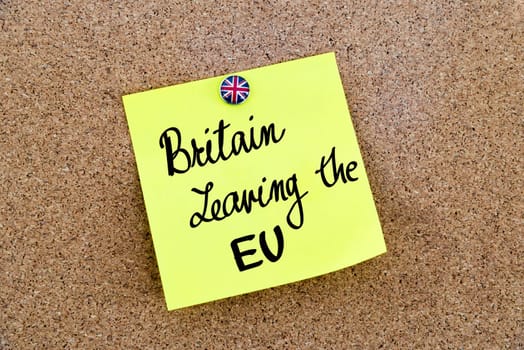 Britain
Leaving the
EU